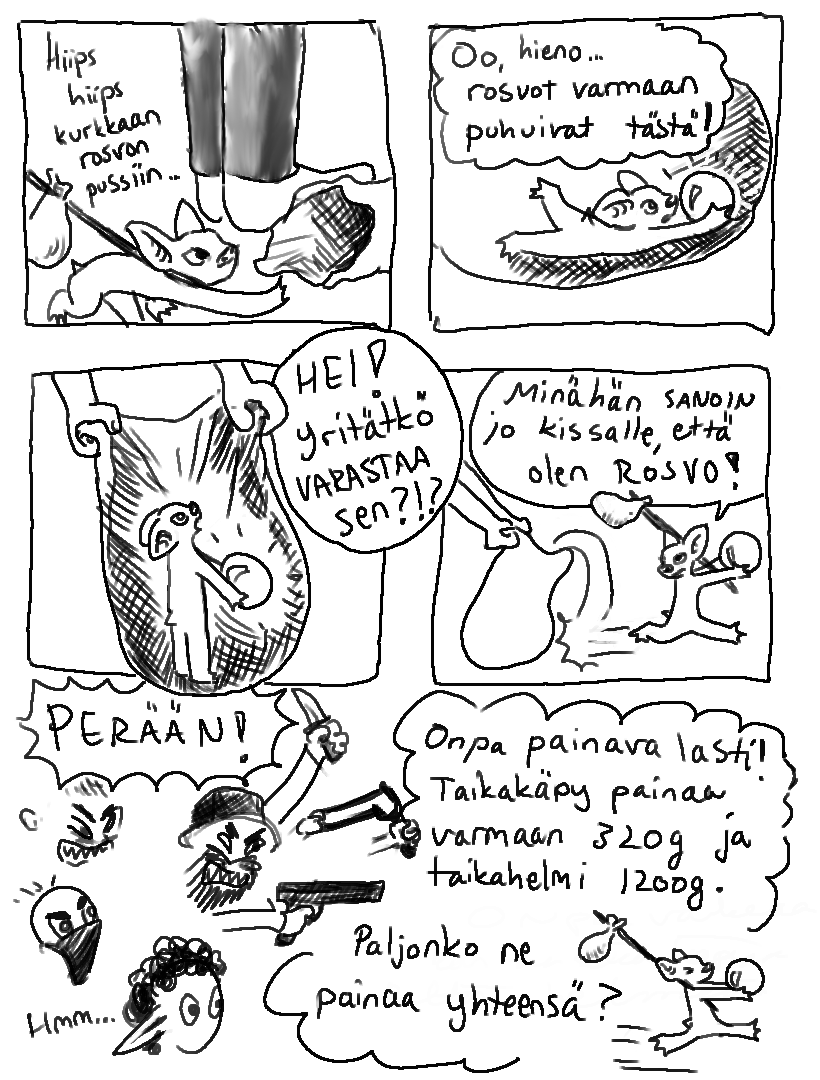 Hiips
hiips
kurkkaan
rosvon
pussiin..
Oo, hieno...
rosvot varmaan
puhuivat tästä!
HEI!
yritätkö
VARASTAA
sen?!?
Minähän SANOIN
jo kissalle, että
olen ROSVO!
PERÄÄN!
Onpa painava lasti!
Taikakäpy painaa
varmaan 320g ja
taikahelmi 1200g.
Hmm...
Paljonko ne
painaa yhteensä?